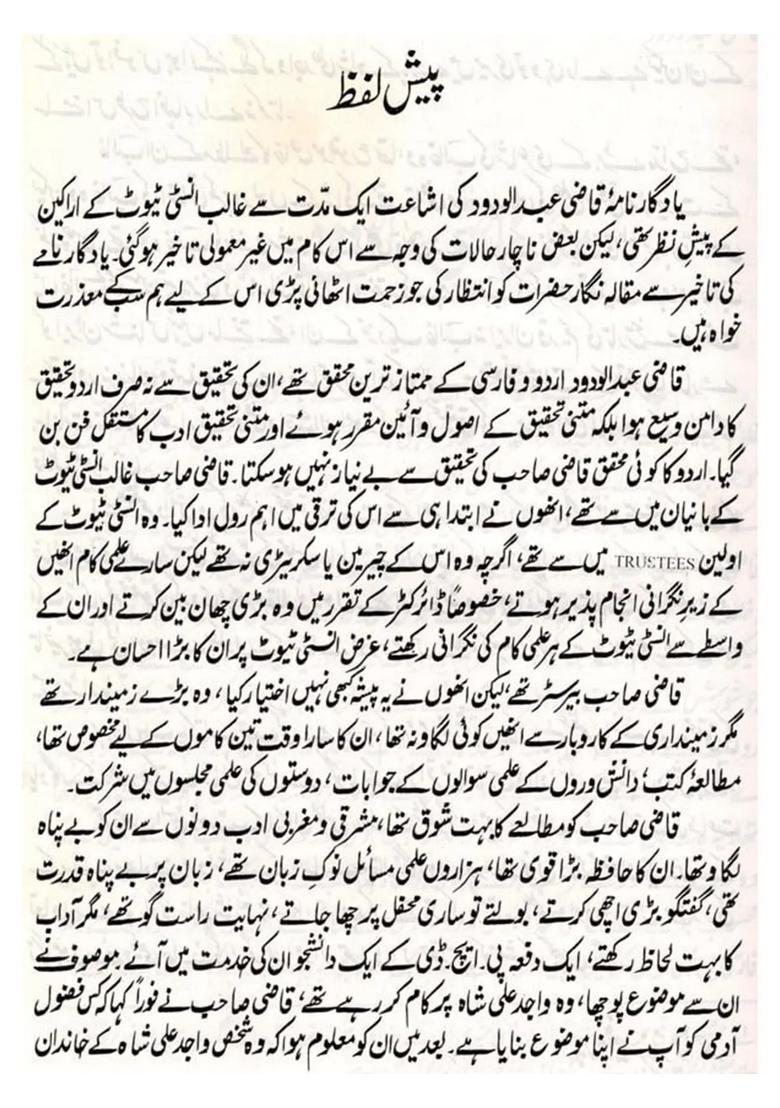 پیش لفظ
یادگار نامۂ قاضی عبدالودود کی اشاعت ایک مدّت سے غالب انسٹی ٹیوٹ کے اراکین
کے پیشِ نظر تھی، لیکن بعض ناچار حالات کی وجہ سے اس کام میں غیر معمولی تاخیر ہوگئی۔ یادگار نامے
کی تاخیر سے مقالہ نگار حضرات کو انتظار کی جو زحمت اٹھانی پڑی اس کے لیے ہم سب کے معذرت
خواہ ہیں۔
قاضی عبدالودود اردو و فارسی کے ممتاز ترین محقق تھے، ان کی تحقیق سے نہ صرف اردو تحقیق
کا دامن وسیع ہوا بلکہ متنی تحقیق کے اصول و آئین مقرر ہوئے اور متنی تحقیق ادب کا مستقل فن بن
گیا۔ اردو کا کوئی محقق قاضی صاحب کی تحقیق سے بے نیاز نہیں ہوسکتا۔ قاضی صاحب غالب انسٹی ٹیوٹ
کے بانیان میں سے تھے، انھوں نے ابتدا ہی سے اس کی ترقی میں اہم رول ادا کیا۔ وہ انسٹی ٹیوٹ کے
اولین TRUSTEES میں سے تھے، اگرچہ وہ اس کے چیرمین یا سکریٹری نہ تھے لیکن سارے علمی کام انھیں
کے زیرِ نگرانی انجام پذیر ہوتے، خصوصاً ڈائرکٹر کے تقرر میں وہ بڑی چھان بین کرتے اور ان کے
واسطے سے انسٹی ٹیوٹ کے ہر علمی کام کی نگرانی رکھتے، غرض انسٹی ٹیوٹ پر ان کا بڑا احسان ہے۔
قاضی صاحب بیرسٹر تھے، لیکن انھوں نے یہ پیشہ کبھی نہیں اختیار کیا، وہ بڑے زمیندار تھے
مگر زمینداری کے کاروبار سے انھیں کوئی لگاو نہ تھا، ان کا سارا وقت تین کاموں کے لیے مخصوص تھا،
مطالعۂ کتب، دانش وروں کے علمی سوالوں کے جوابات، دوستوں کی علمی مجلسوں میں شرکت۔
قاضی صاحب کو مطالعے کا بہت شوق تھا، مشرقی و مغربی ادب دونوں سے ان کو بے پناہ
لگاو تھا۔ ان کا حافظہ بڑا قوی تھا، ہزاروں علمی مسائل نوکِ زبان تھے، زبان پر بے پناہ قدرت
تھی، گفتگو بڑی اچھی کرتے، بولتے تو ساری محفل پر چھا جاتے، نہایت راست گو تھے، مگر آداب
کا بہت لحاظ رکھتے، ایک دفعہ پی۔ ایچ۔ ڈی کے ایک دانشجو ان کی خدمت میں آئے۔ موصوف نے
ان سے موضوع پوچھا، وہ واجد علی شاہ پر کام کر رہے تھے، قاضی صاحب نے فوراً کہا کہ کس فضول
آدمی کو آپ نے اپنا موضوع بنایا ہے۔ بعد میں ان کو معلوم ہوا کہ وہ شخص واجد علی شاہ کے خاندان